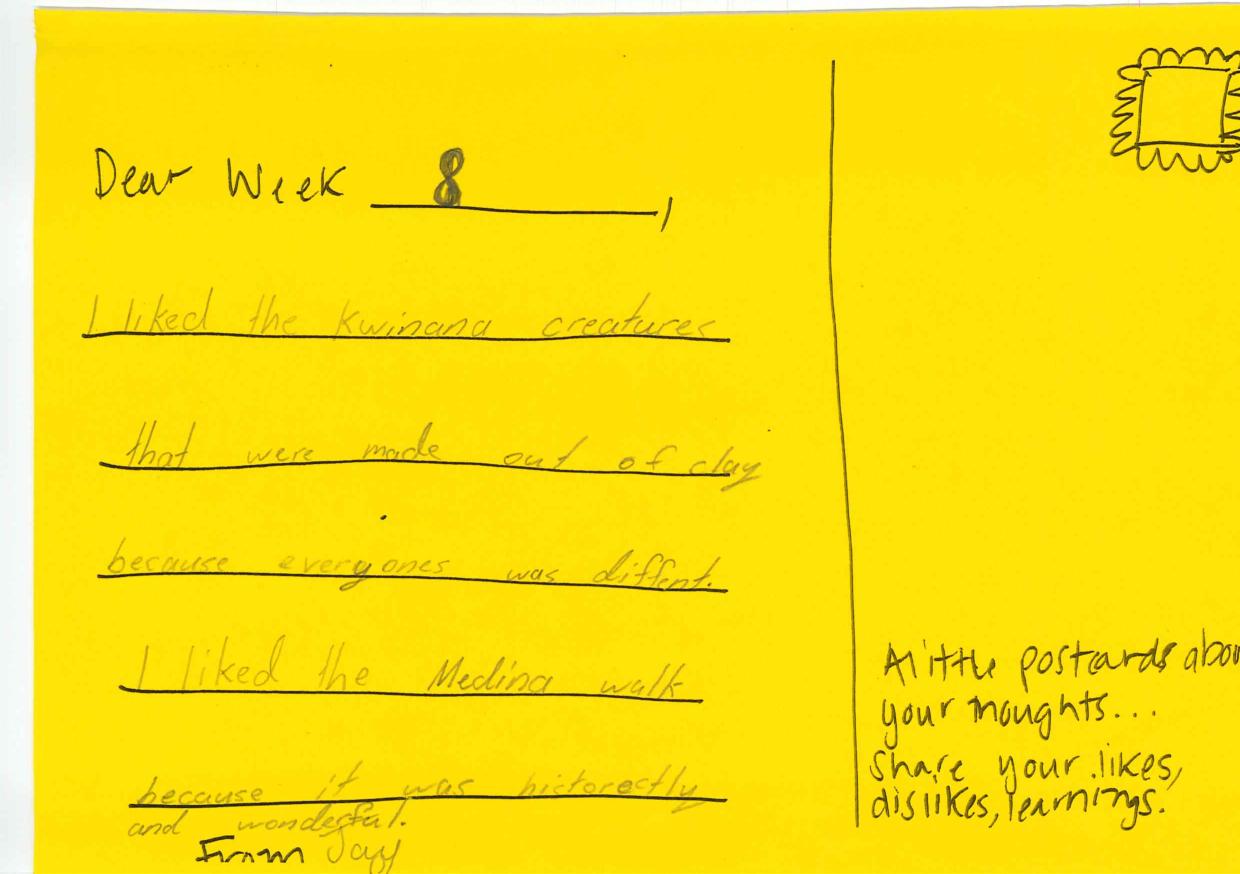 Dear Week 8,
I liked the Kwinana creatures
that were made out of clay
because everyones was diffent.
I liked the Medina walk
because it was
and wonderful.
From
A little postcards abou
your thoughts...
Share your likes,
dislikes, learnings.